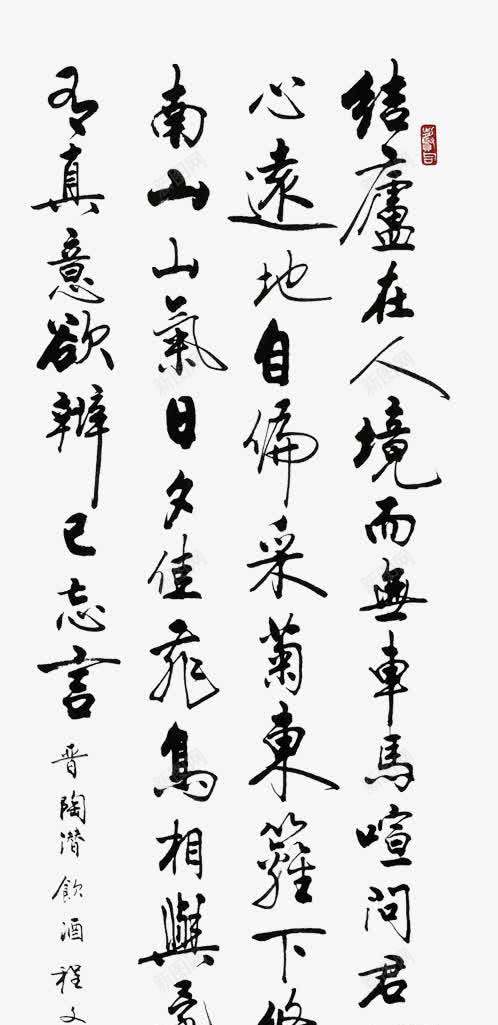 結廬在人境而無車馬喧問君
心遠地自偏采菊東籬下悠
南山山氣日夕佳飛鳥相與
有真意欲辨已忘言
晋陶潜飲酒程文